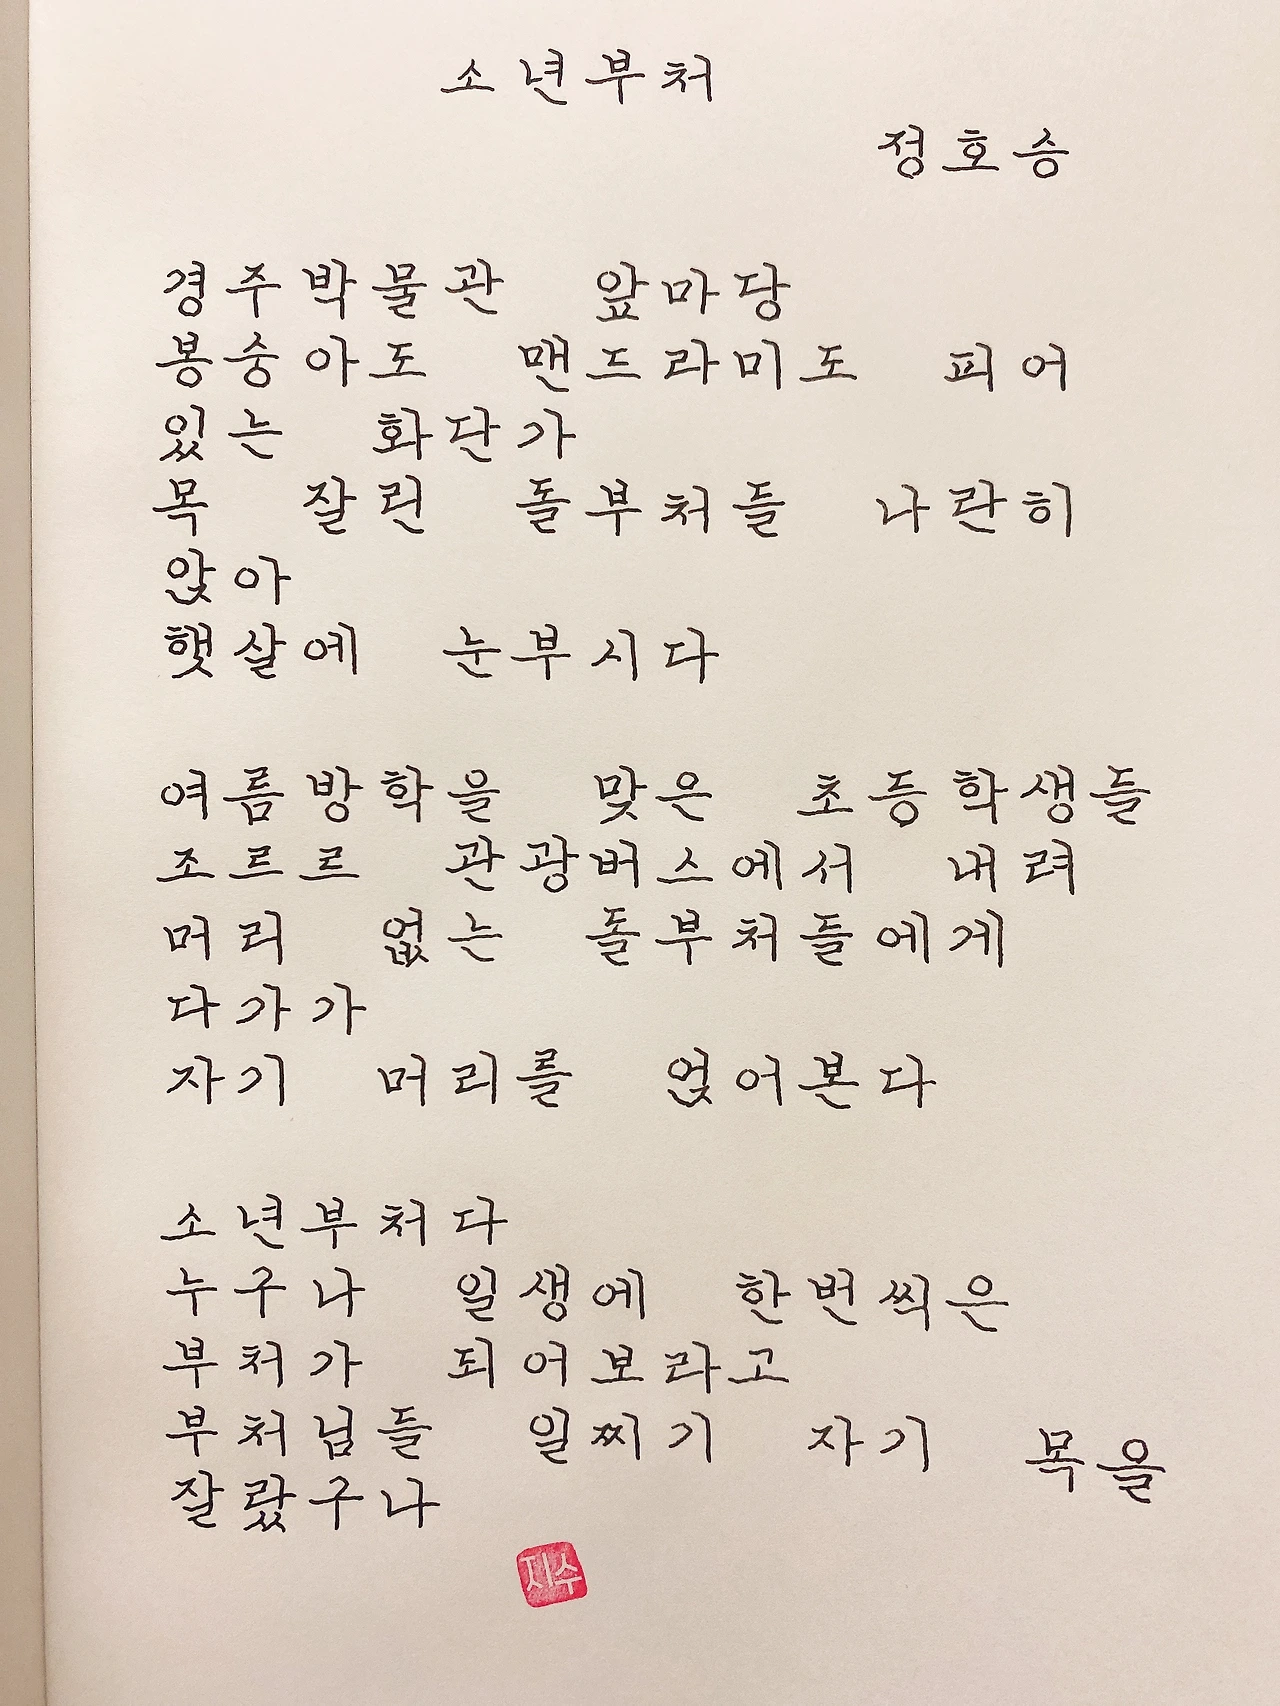 소년부처
정호승
경주박물관 앞마당
봉숭아도 맨드라미도 피어
있는 화단가
목 잘린 돌부처들 나란히
앉아
햇살에 눈부시다
여름방학을 맞은 초등학생들
조르르 관광버스에서 내려
머리 없는 돌부처들에게
다가가
자기 머리를 얹어본다
소년부처다
누구나 일생에 한번씩은
부처가 되어보라고
부처님들 일찌기 자기 목을
잘랐구나
지수